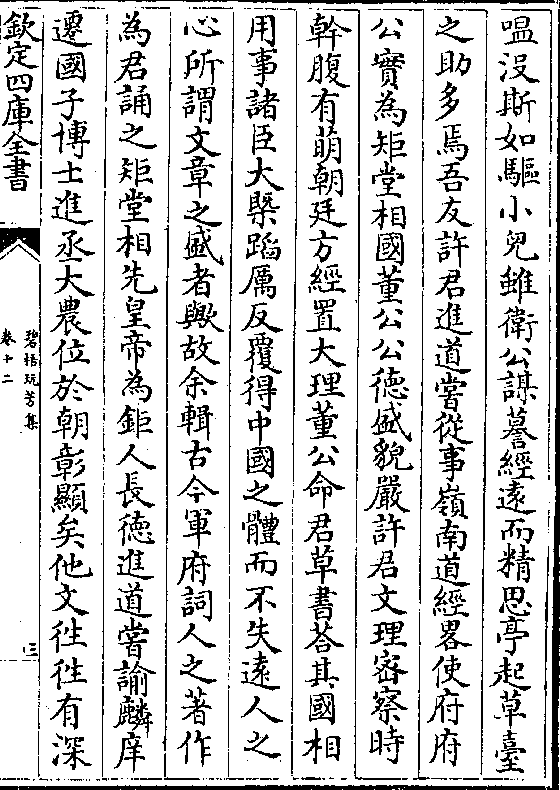 嗢沒斯如驅小兒雖衛公謀謩經遠而精思亭起草臺
之助多焉吾友許君進道嘗從事嶺南道經畧使府府
公實為矩堂相國董公公德盛貌嚴許君文理密察時
幹腹有萌朝廷方經置大理董公命君草書荅其國相
用事諸臣大槩蹈厲反覆得中國之體而不失遠人之
心所謂文章之盛者歟故余輯古今軍府詞人之著作
為君誦之矩堂相先皇帝為鉅人長徳進道嘗諭麟庠
遷國子博士進丞大農位於朝彰顯矣他文徃徃有深
欽定四庫全書
碧梧玩芳集
卷十二
三